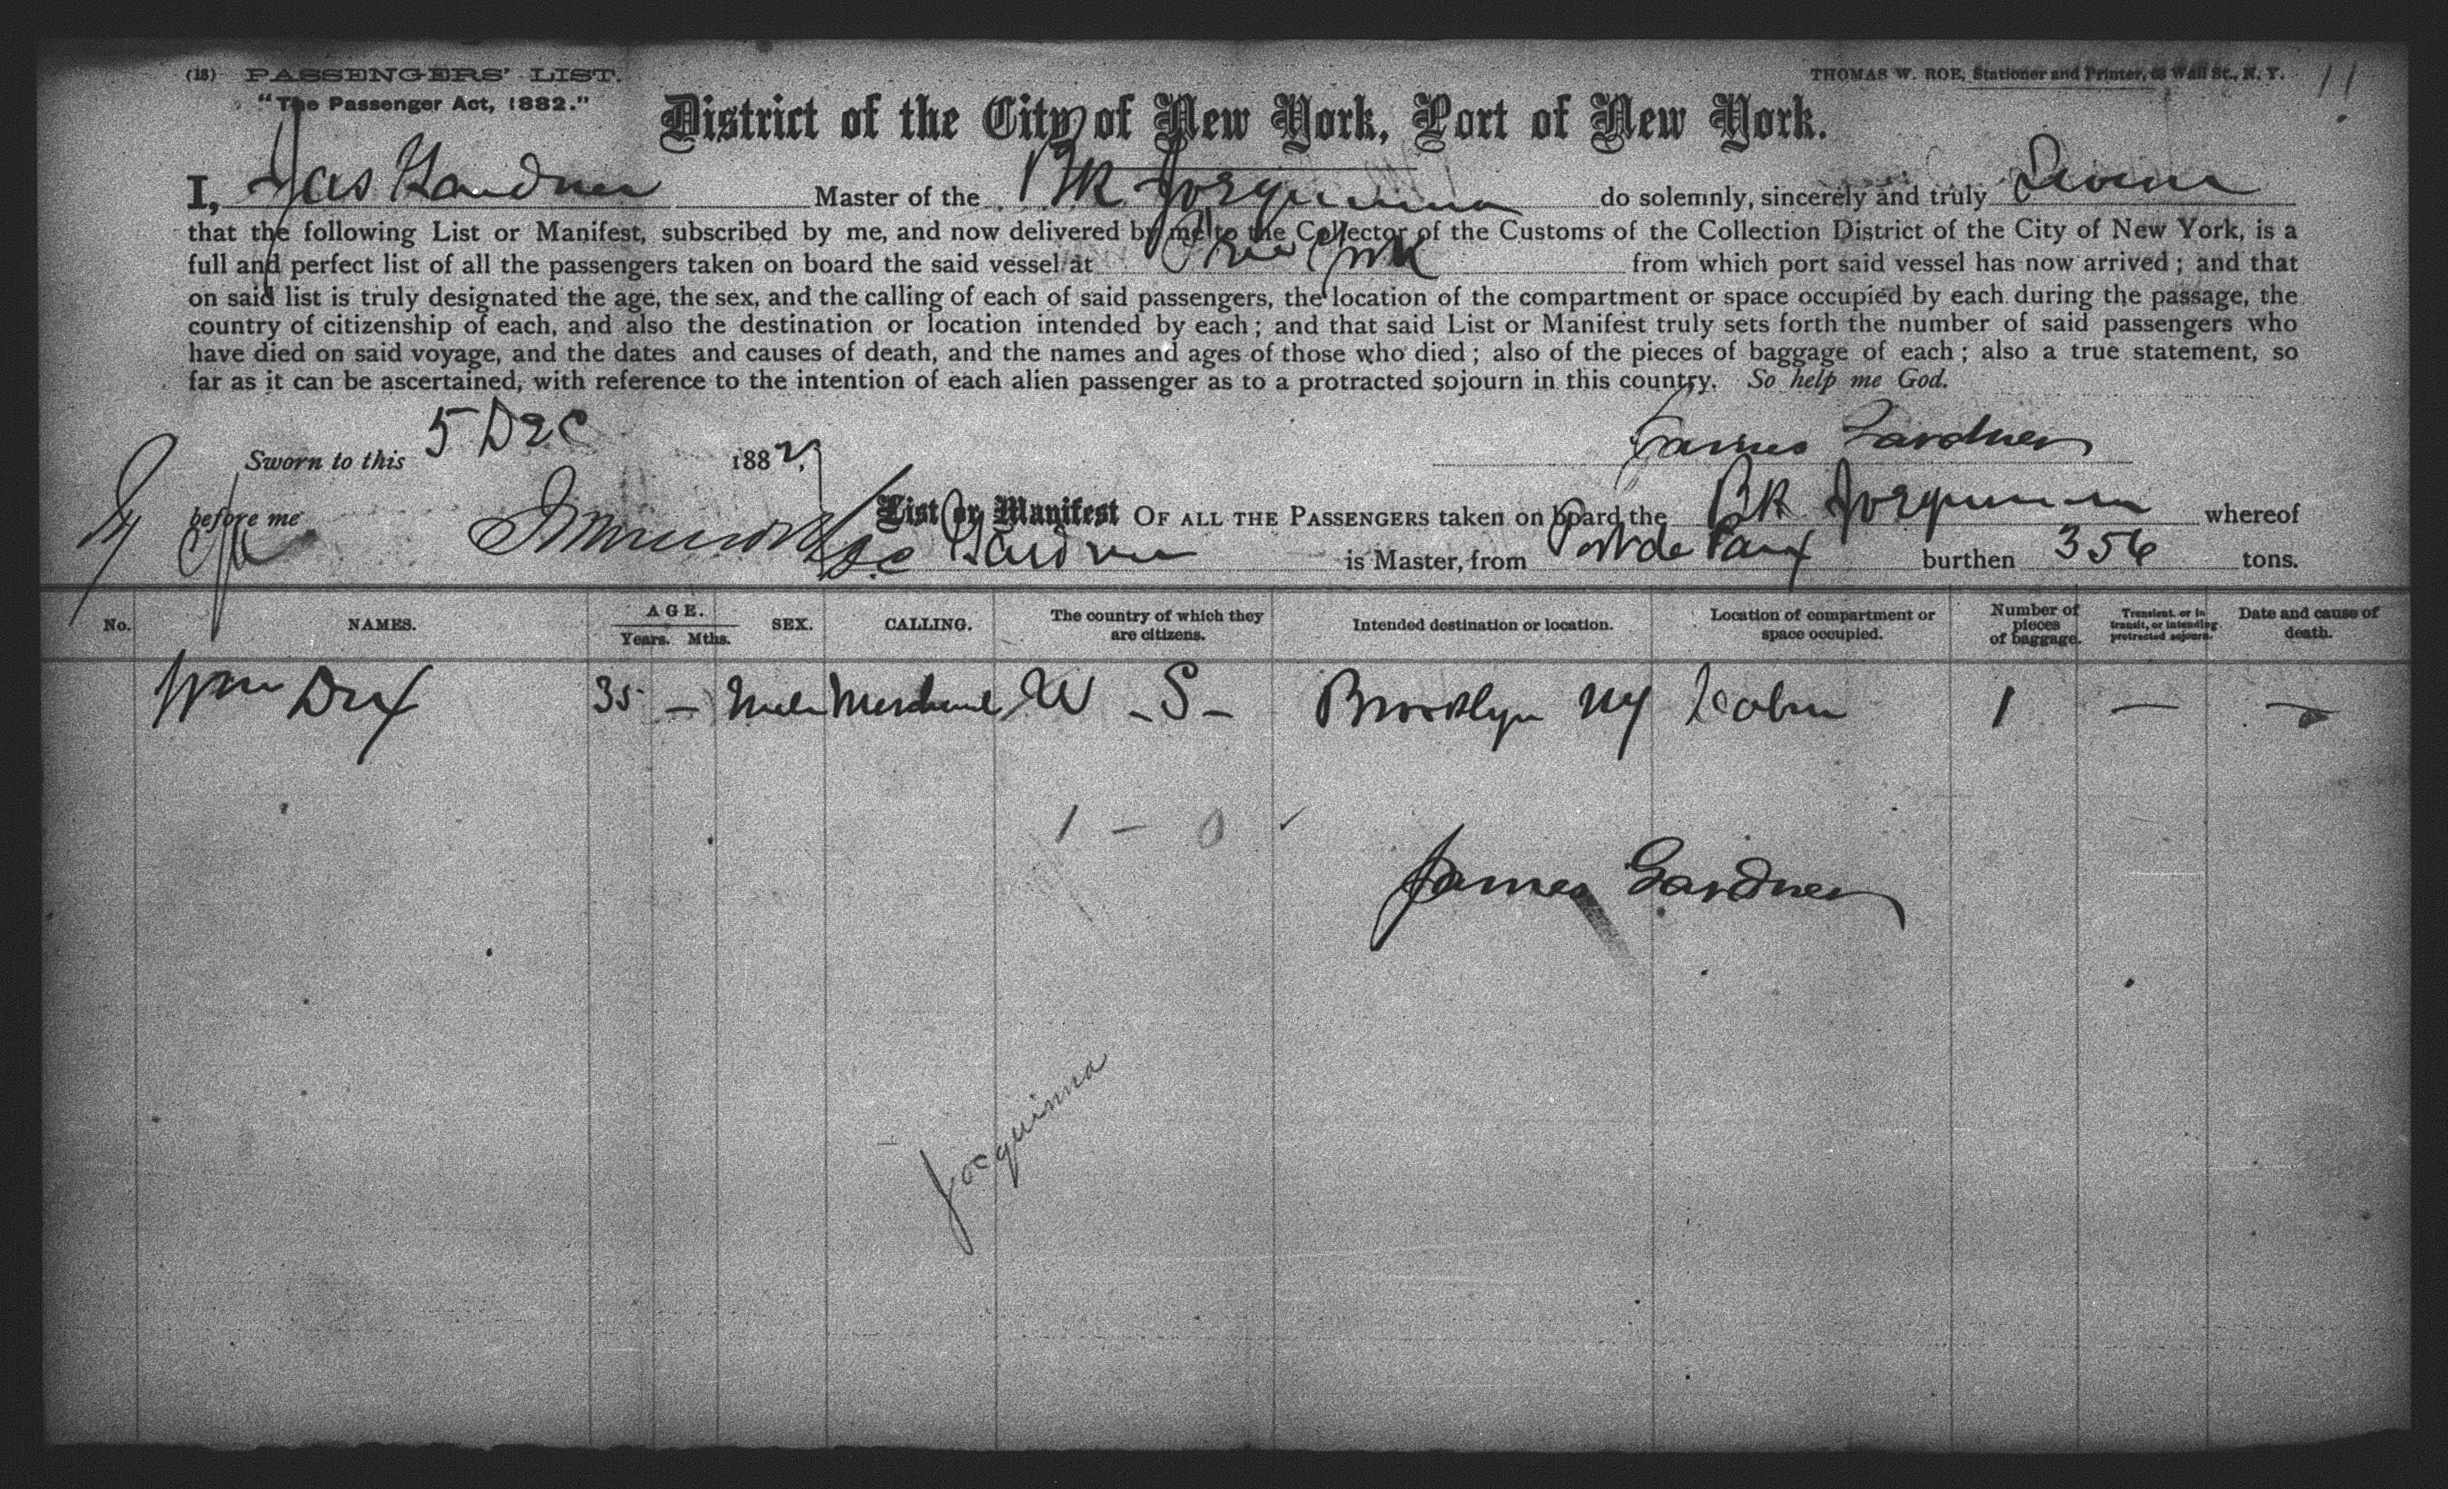 (18) PASSENGERS' LIST.
"The Passenger Act, 1882."
THOMAS W. ROE, Stationer and Printer, Wall St., N. Y. 11
District of the City of New York, Port of New York.
I, Jas Gardner Master of the BK Joequinna do solemnly, sincerely and truly Swear
that the following List or Manifest, subscribed by me, and now delivered by me to the Collector of the Customs of the Collection District of the City of New York, is a
full and perfect list of all the passengers taken on board the said vessel at New York from which port said vessel has now arrived; and that
on said list is truly designated the age, the sex, and the calling of each of said passengers, the location of the compartment or space occupied by each during the passage, the
country of citizenship of each, and also the destination or location intended by each; and that said List or Manifest truly sets forth the number of said passengers who
have died on said voyage, and the dates and causes of death, and the names and ages of those who died; also of the pieces of baggage of each; also a true statement, so
far as it can be ascertained, with reference to the intention of each alien passenger as to a protracted sojourn in this country. So help me God.
Sworn to this 5 Dec 1882, James Gardner
before me
List or Manifest OF ALL THE PASSENGERS taken on board the BK whereof
Gardner is Master, from Port de Paix burthen 356 tons.
No. NAMES. AGE. Years. Mths. SEX. CALLING. The country of which they are citizens. Intended destination or location. Location of compartment or space occupied. Number of pieces of baggage. Transient, or in transit, or intending protracted sojourn. Date and cause of death.
Wm Dix 35 — Male Merchant U - S - Brooklyn NY Cabin 1 — —
1 — 0 ✓
James Gardner
Joequinna